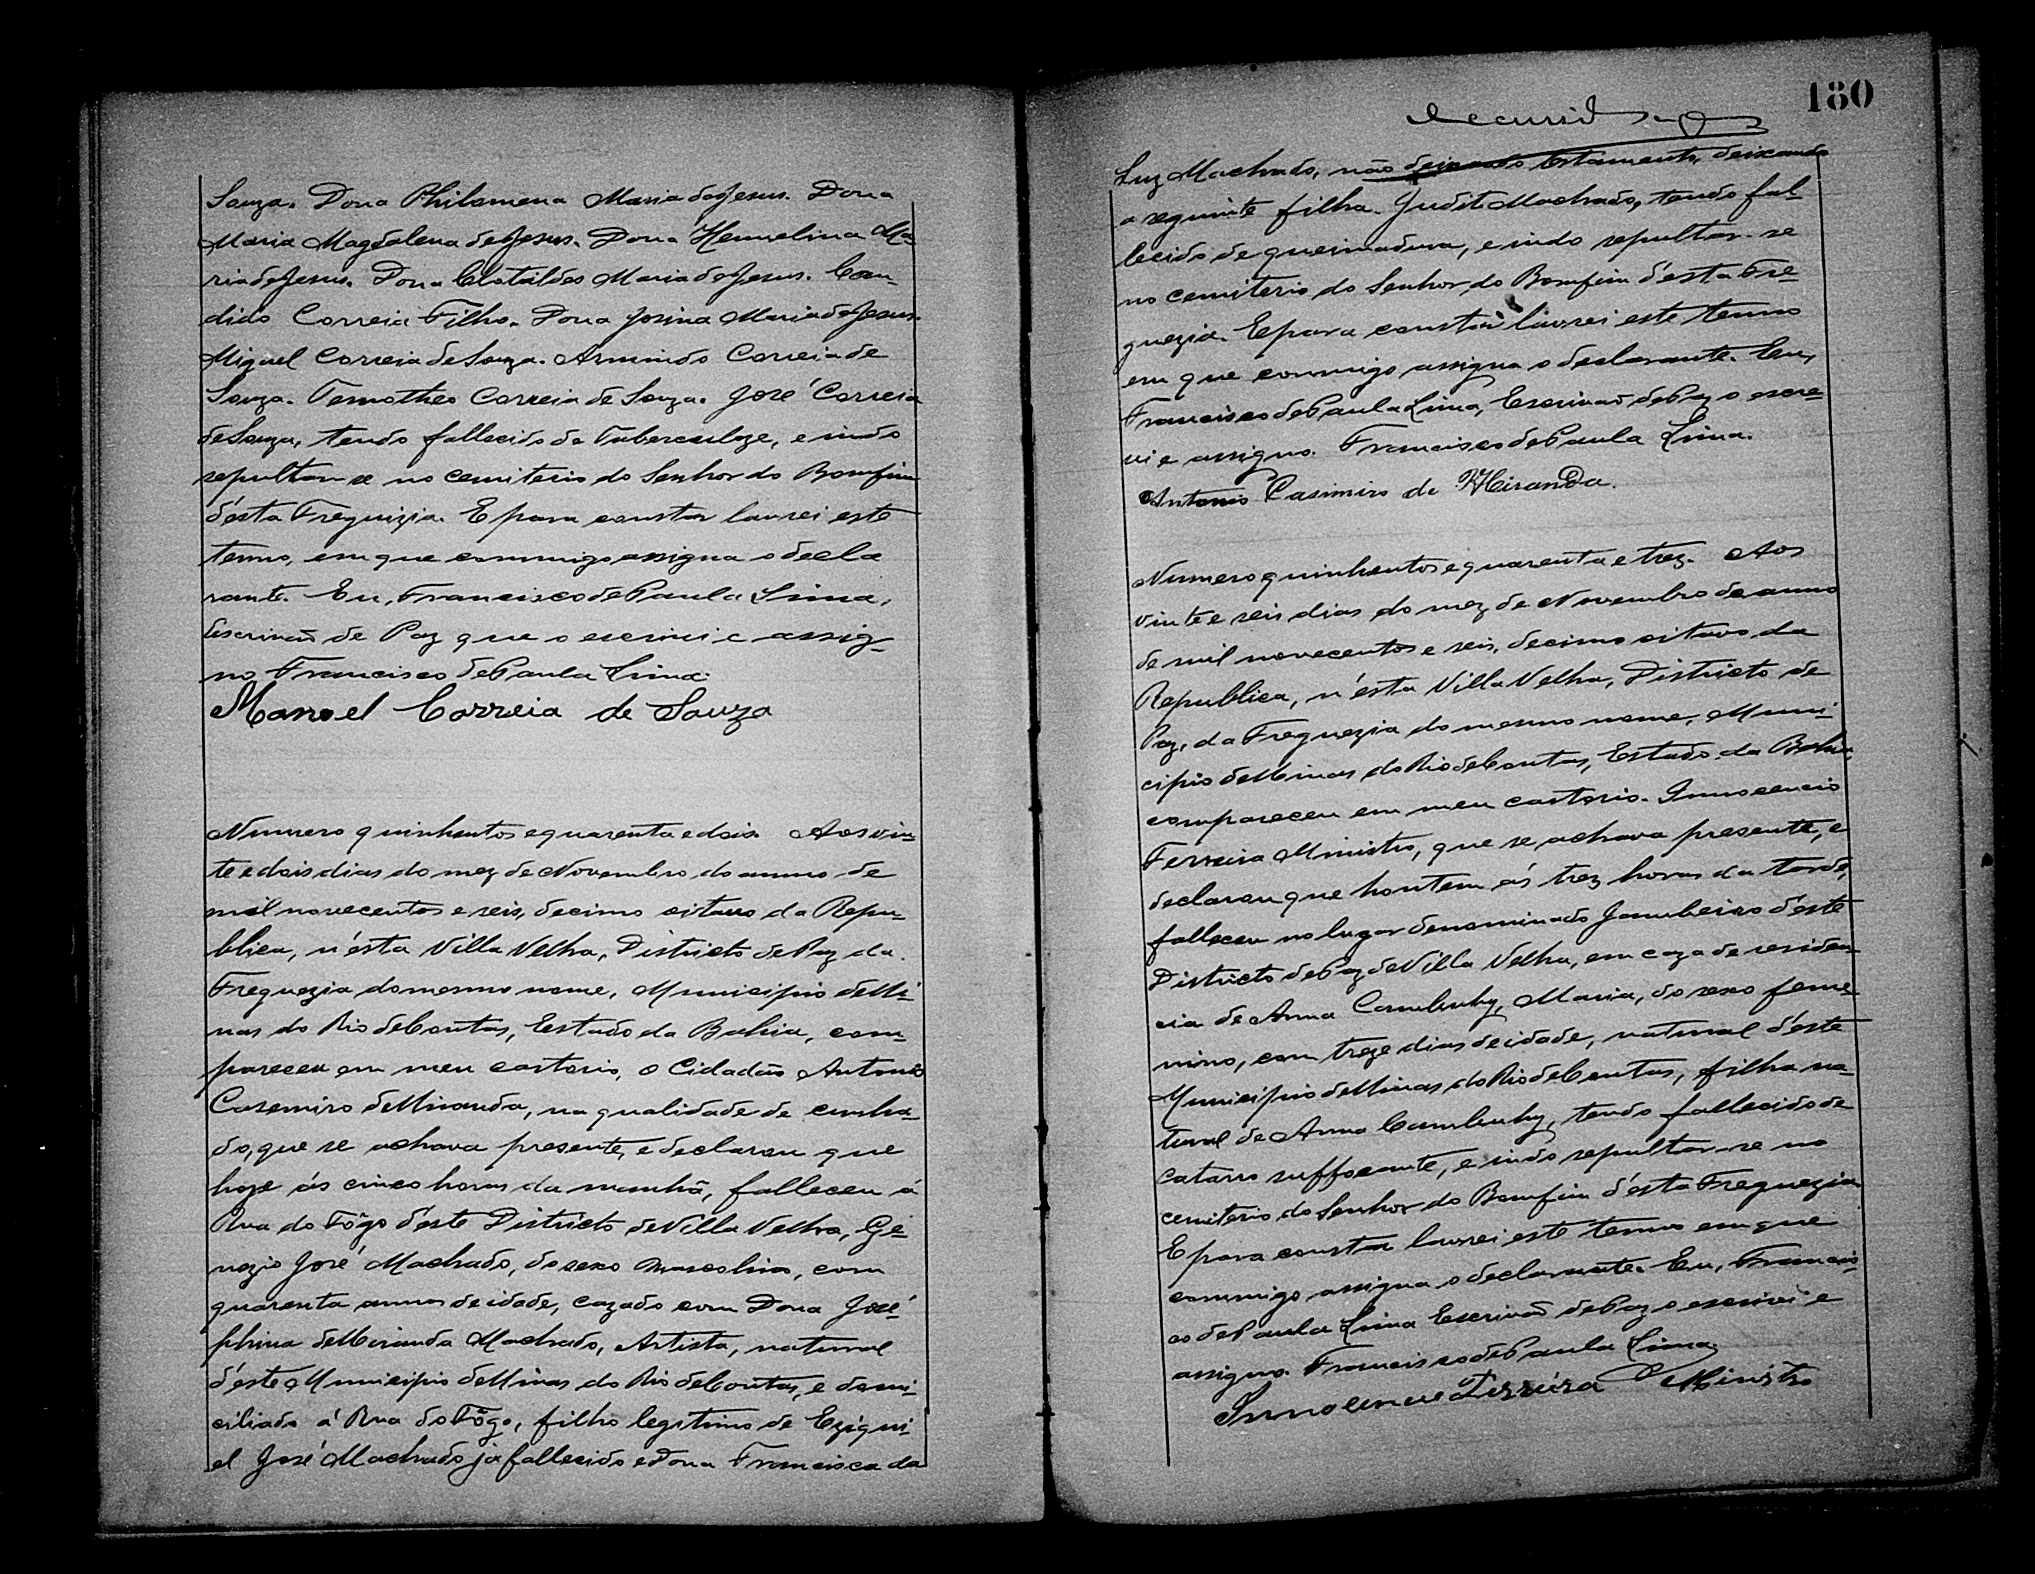 Souza. Dona Philomena Maria de Jesus. Dona
Maria Magdalena de Jesus. Dona Hermelina Ma-
ria de Jesus. Dona Clotildes Maria de Jesus. Can-
dido Correia Filho. Dona Josina Maria de Jesus.
Miguel Correia de Souza. Armindo Correia de
Souza. Temotheo Correia de Souza. José Correia
de Souza, tendo fallecido de Tuberculoze, e indo
sepultar se no cemiterio do Senhor do Bomfim
d'esta Freguizia. E para constar lavrei este
termo, em que commigo assigna o decla
rante. Eu, Francisco de Paula Lima,
Escrivaõ de Paz que o escrivi e assig-
no Francisco de Paula Lima.
Manoel Correia de Souza
Numero quinhentos e quarenta e dois. Aos vin-
te e dois dias do mez de Novembro do anno de
mil novecentos e seis, decimo oitavo da Repu-
blica, n'ésta Villa Velha, Districto de Paz da
Freguezia do mesmo nome, Municipio de Mi-
nas do Rio de Contas, Estado da Bahia, com-
pareceu em meu cartorio, o Cidadão Antonio
Casemiro de Miranda, na qualidade de cunha-
do, que se achava presente, e declarou que
hoje ás cinco horas da manhã, falleceu á
Rua do Fôgo d'éste Districto de Villa Velha, Gé-
nezio José Machado, do sexo masculino, com
quarenta annos de idade, cazado com Dona José-
phina de Miranda Machado, Artista, natural
d'éste Municipio de Minas do Rio de Contas, e domi-
ciliado á Rua do Fôgo, filho legitimo de Eziqui-
el José Machado já fallecido e Dona Francisca da
180
Luz Machado, não deixando testamento, deixando
a seguinte filha. Judite Machado, tendo fal-
lecido de queimadura, e indo sepultar-se
no cemiterio do Senhor do Bomfim d'ésta Fre-
guezia. E para constar lavrei este termo
em que commigo assigna o declarante. Eu,
Francisco de Paula Lima, Escrivaõ de Paz o escre-
vi e assigno. Francisco de Paula Lima.
Antonio Casimiro de Miranda.
Numero quinhentos e quarenta e trez. Aos
vinte e seis dias do mez de Novembro de anno
de mil novecentos e seis, decimo oitavo da
Republica, n'ésta Villa Velha, Districto de
Paz, da Freguezia do mesmo nome, Muni-
cipio de Minas do Rio de Contas, Estado da Bahia,
compareceu em meu cartorio. Innocencio
Ferreira Ministro, que se achava presente, e
declarou que hontem ás trez horas da tarde,
falleceu no lugar denominado Jambeiro d'éste
Districto de Paz de Villa Velha, em caza de residen-
cia de Anna Cambuhy, Maria, do sexo feme-
nino, com treze dias de idade, natural d'éste
Municipio de Minas do Rio de Contas, filha na-
tural de Anna Cambuhy, tendo fallecido de
catarro suffocante, e indo sepultar-se no
cemiterio do Senhor do Bomfim d'ésta Freguezia
E para constar lavrei este termo em que
commigo assigna o declarante. Eu, Francis-
co de Paula Lima Escrivaõ de Paz o escrivi e
assigno. Francisco de Paula Lima
Ferreira Ministro